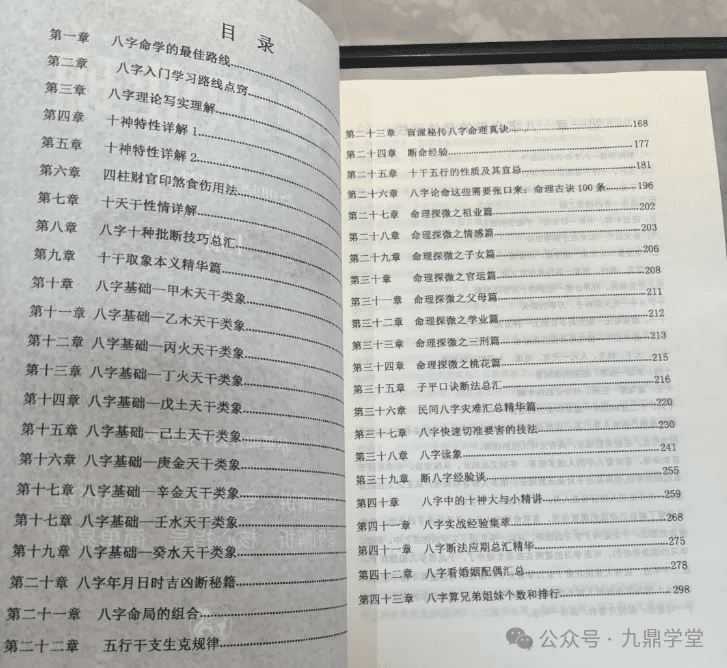 目 录
第一章 八字命学的最佳路线
第二章 八字入门学习路线点窍
第三章 八字理论写实理解
第四章 十神特性详解1
第五章 十神特性详解2
第六章 四柱财官印煞食伤用法
第七章 十天干性情详解
第八章 八字十种批断技巧总汇
第九章 十干取象本义精华篇
第十章 八字基础—甲木天干类象
第十一章 八字基础—乙木天干类象
第十二章 八字基础—丙火天干类象
第十三章 八字基础—丁火天干类象
第十四章 八字基础—戊土天干类象
第十五章 八字基础—己土天干类象
第十六章 八字基础—庚金天干类象
第十七章 八字基础—辛金天干类象
第十七章 八字基础—壬水天干类象
第十九章 八字基础—癸水天干类象
第二十章 八字年月日时吉凶断秘籍
第二十一章 八字命局的组合
第二十二章 五行干支生克规律
第二十三章 盲派秘传八字命理真诀 168
第二十四章 断命经验 177
第二十五章 十干五行的性质及其宜忌 181
第二十六章 八字论命这些需要张口来:命理古诀100条 196
第二十七章 命理探微之祖业篇 202
第二十八章 命理探微之情感篇 203
第二十九章 命理探微之子女篇 206
第三十章 命理探微之官运篇 208
第三十一章 命理探微之父母篇 211
第三十二章 命理探微之学业篇 212
第三十三章 命理探微之三刑篇 213
第三十四章 命理探微之桃花篇 215
第三十五章 子平口诀断法总汇 216
第三十六章 民间八字灾难汇总精华篇 220
第三十七章 八字快速切准要害的技法 230
第三十八章 八字读象 241
第三十九章 断八字经验谈 255
第四十章 八字中的十神大与小精讲 259
第四十一章 八字实战经验集萃 268
第四十一章 八字断法应期总汇精华 275
第四十二章 八字看婚姻配偶汇总 278
第四十三章 八字算兄弟姐妹个数和排行 298
公众号·九鼎学堂